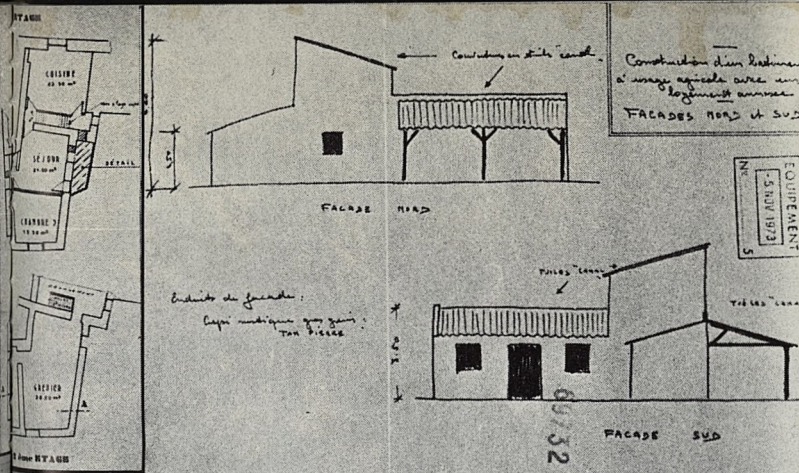 ETAGE
CUISINE
SÉJOUR
DÉTAIL
CHAMBRE 2
GRENIER
A
2ème ETAGE
Couverture en tuiles "canal"
FACADE NORD
Construction d'un batimen
à usage agricole avec un
logement annexe
FACADES NORD et SUD
EQUIPEMENT
-5 NOV 1973
N° 5
Enduits de façade :
Crépi rustique gros grain :
TON PIERRE
TUILES "CANAL"
TUILES "CANA
69732
FACADE SUD